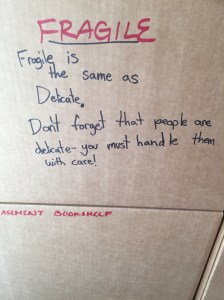 FRAGILE
Fragile is
the same as
Delicate.
Don't forget that people are
delicate - you must handle them
with care!
ASEMENT BOOKSHELF